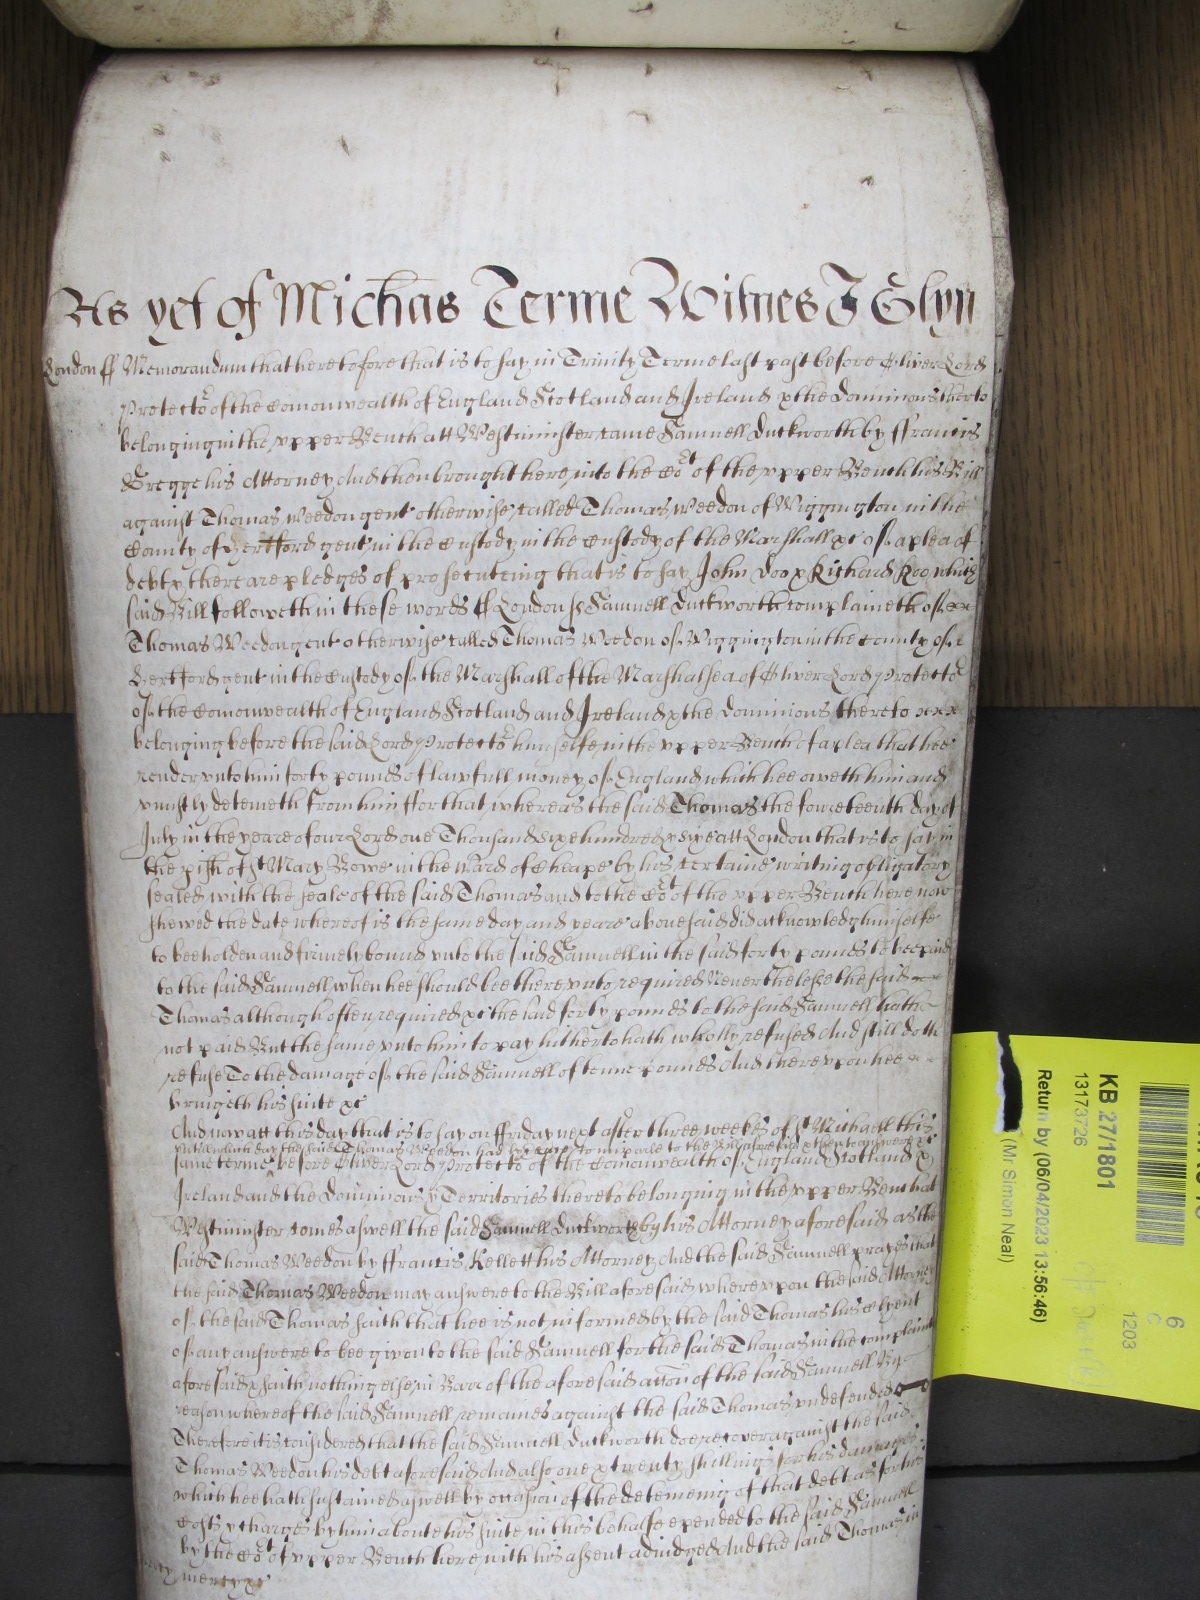 As yet of Michas Terme Witnes J Glyn
London ss Memorandum that heretofore that is to say in Trinity Terme last past before Oliver Lord
Protector of the Comonwealth of England Scotland and Ireland & the Dominions therto
belonging in the vpper Bench att Westminister came Samuell Duckworth by ffrancis
Gregge his Attorney And then brought here into the Cort of the vpper Bench his Bill
against Thomas Weedon gent otherwise called Thomas Weedon of Wiggington in the
County of Hertford gent in the Custody in the Custody of the Marshall &c of a plea of
debt & there are pledges of prosecuteing that is to say John Doo & Richard Roo which
said Bill followeth in these words ss London ss Samuell Duckworth complaineth of
Thomas Weedon gent otherwise called Thomas Weedon of Wiggington in the County of
Hertford gent in the Custody of the Marshall of the Marshalsea of Oliver Lord Protector
of the Comonwealth of England Scotland and Ireland & the Dominions thereto
belonging before the said Lord Protector himselfe in the vpper Bench of a plea that hee
render vnto him forty pounds of lawfull money of England which hee oweth him and
vniustly deteineth from him ffor that whereas the said Thomas the foureteenth day of
July in the yeare of our Lord one Thousand sixe hundred & sixe att London that is to say in
the pish of St Mary Bowe in the Ward of Cheape by his certaine writing obligatory
sealed with the seale of the said Thomas and to the Cort of the vpper Bench here now
shewed the date whereof is the same day and yeare aboue said did acknowledg himselfe
to bee holden and firmely bound vnto the said Samuell in the said forty pounds to bee paid
to the said Samuell when hee should bee therevnto required Neuerthelesse the said
Thomas although often required &c the said forty pounds to the said Samuell hath
not paid But the same vnto him to pay hitherto hath wholly refused And still doth
refuse To the damage of the said Samuell of tenne pounds And therevpon hee
bringeth his suite &c
And now att this day that is to say on ffriday next after three weekes of St Michaell this
vntill which day the said Thomas Weedon had lycence to imparle to the Bill aforesaid & then to answere &c
same terme before Oliver Lord Protector of the Comonwealth of England Scotland &
Ireland and the Dominions & Territories thereto belonging in the vpper Bench at
Westminster comes aswell the said Samuell Duckworth by his Attorney aforesaid as the
said Thomas Weedon by ffrancis Kellett his Attorney And the said Samuell prayes that
the said Thomas Weedon may answere to the Bill aforesaid wherevpon the said Attorney
of the said Thomas saith that hee is not informed by the said Thomas his Clyent
of any answere to bee given to the said Samuell for the said Thomas in the complaint
aforesaid & saith nothing else in Barr of the aforesaid accon of the said Samuell By
reason whereof the said Samuell remaines against the said Thomas vndefended
Therefore it is considered that the said Samuell Duckworth doe recover against the said
Thomas Weedon his debt aforesaid And also one & twenty shillings for his damages
which hee hath sustained aswell by occasion of the deteineing of that debt as for his
Costs & charges by him aboute his suite in this behalfe expended to the said Samuell
by the Cort of vpper Bench here with his assent adiudged And the said Thomas in
mercy &c
KB 27/1801
13173726
Return by (06/04/2023 13:56:46)
(Mr Simon Neal)
6
C
1203